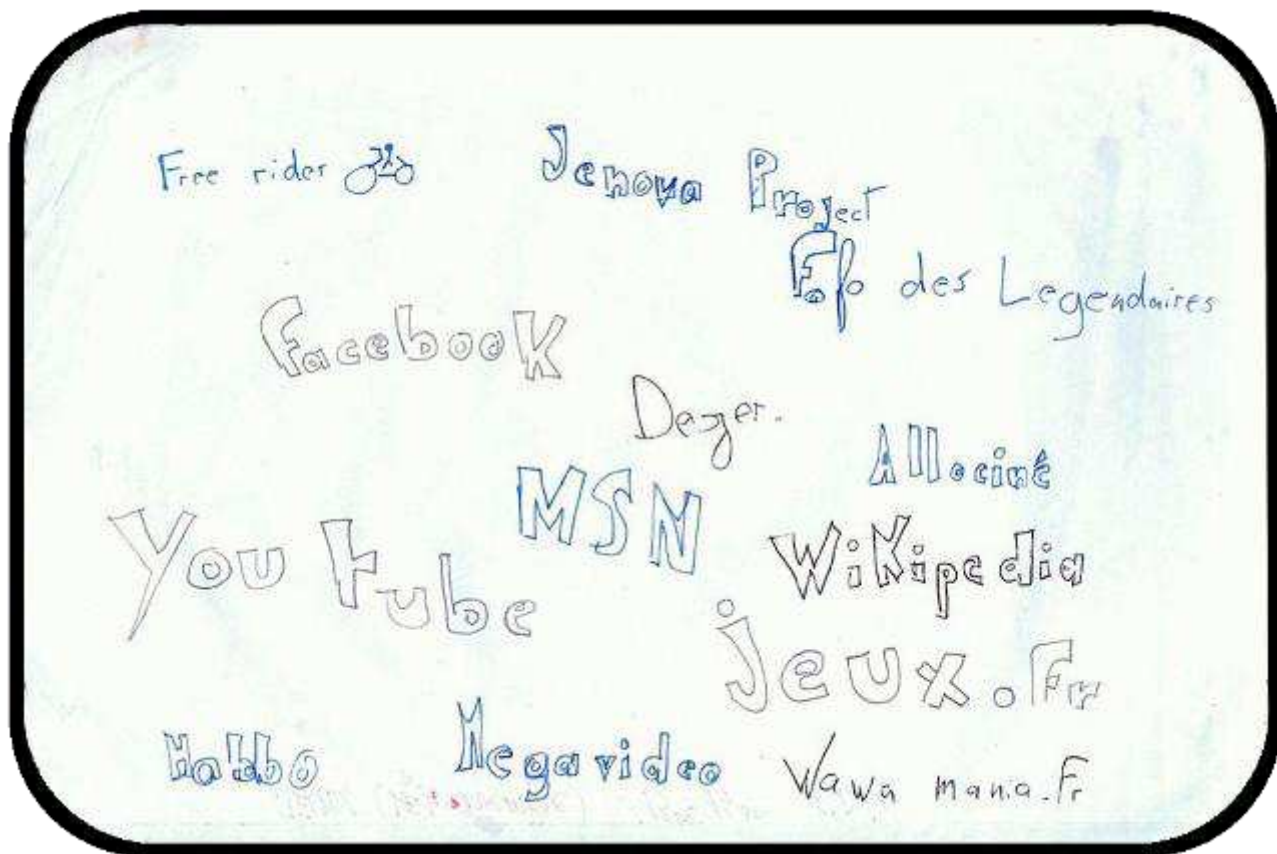 Free rider
Jenova Project
Fofo des Legendaires
Facebook
MSN
Allociné
You tube
Wikipedia
jeux.Fr
Habbo
Megavideo
Wawa mania.Fr